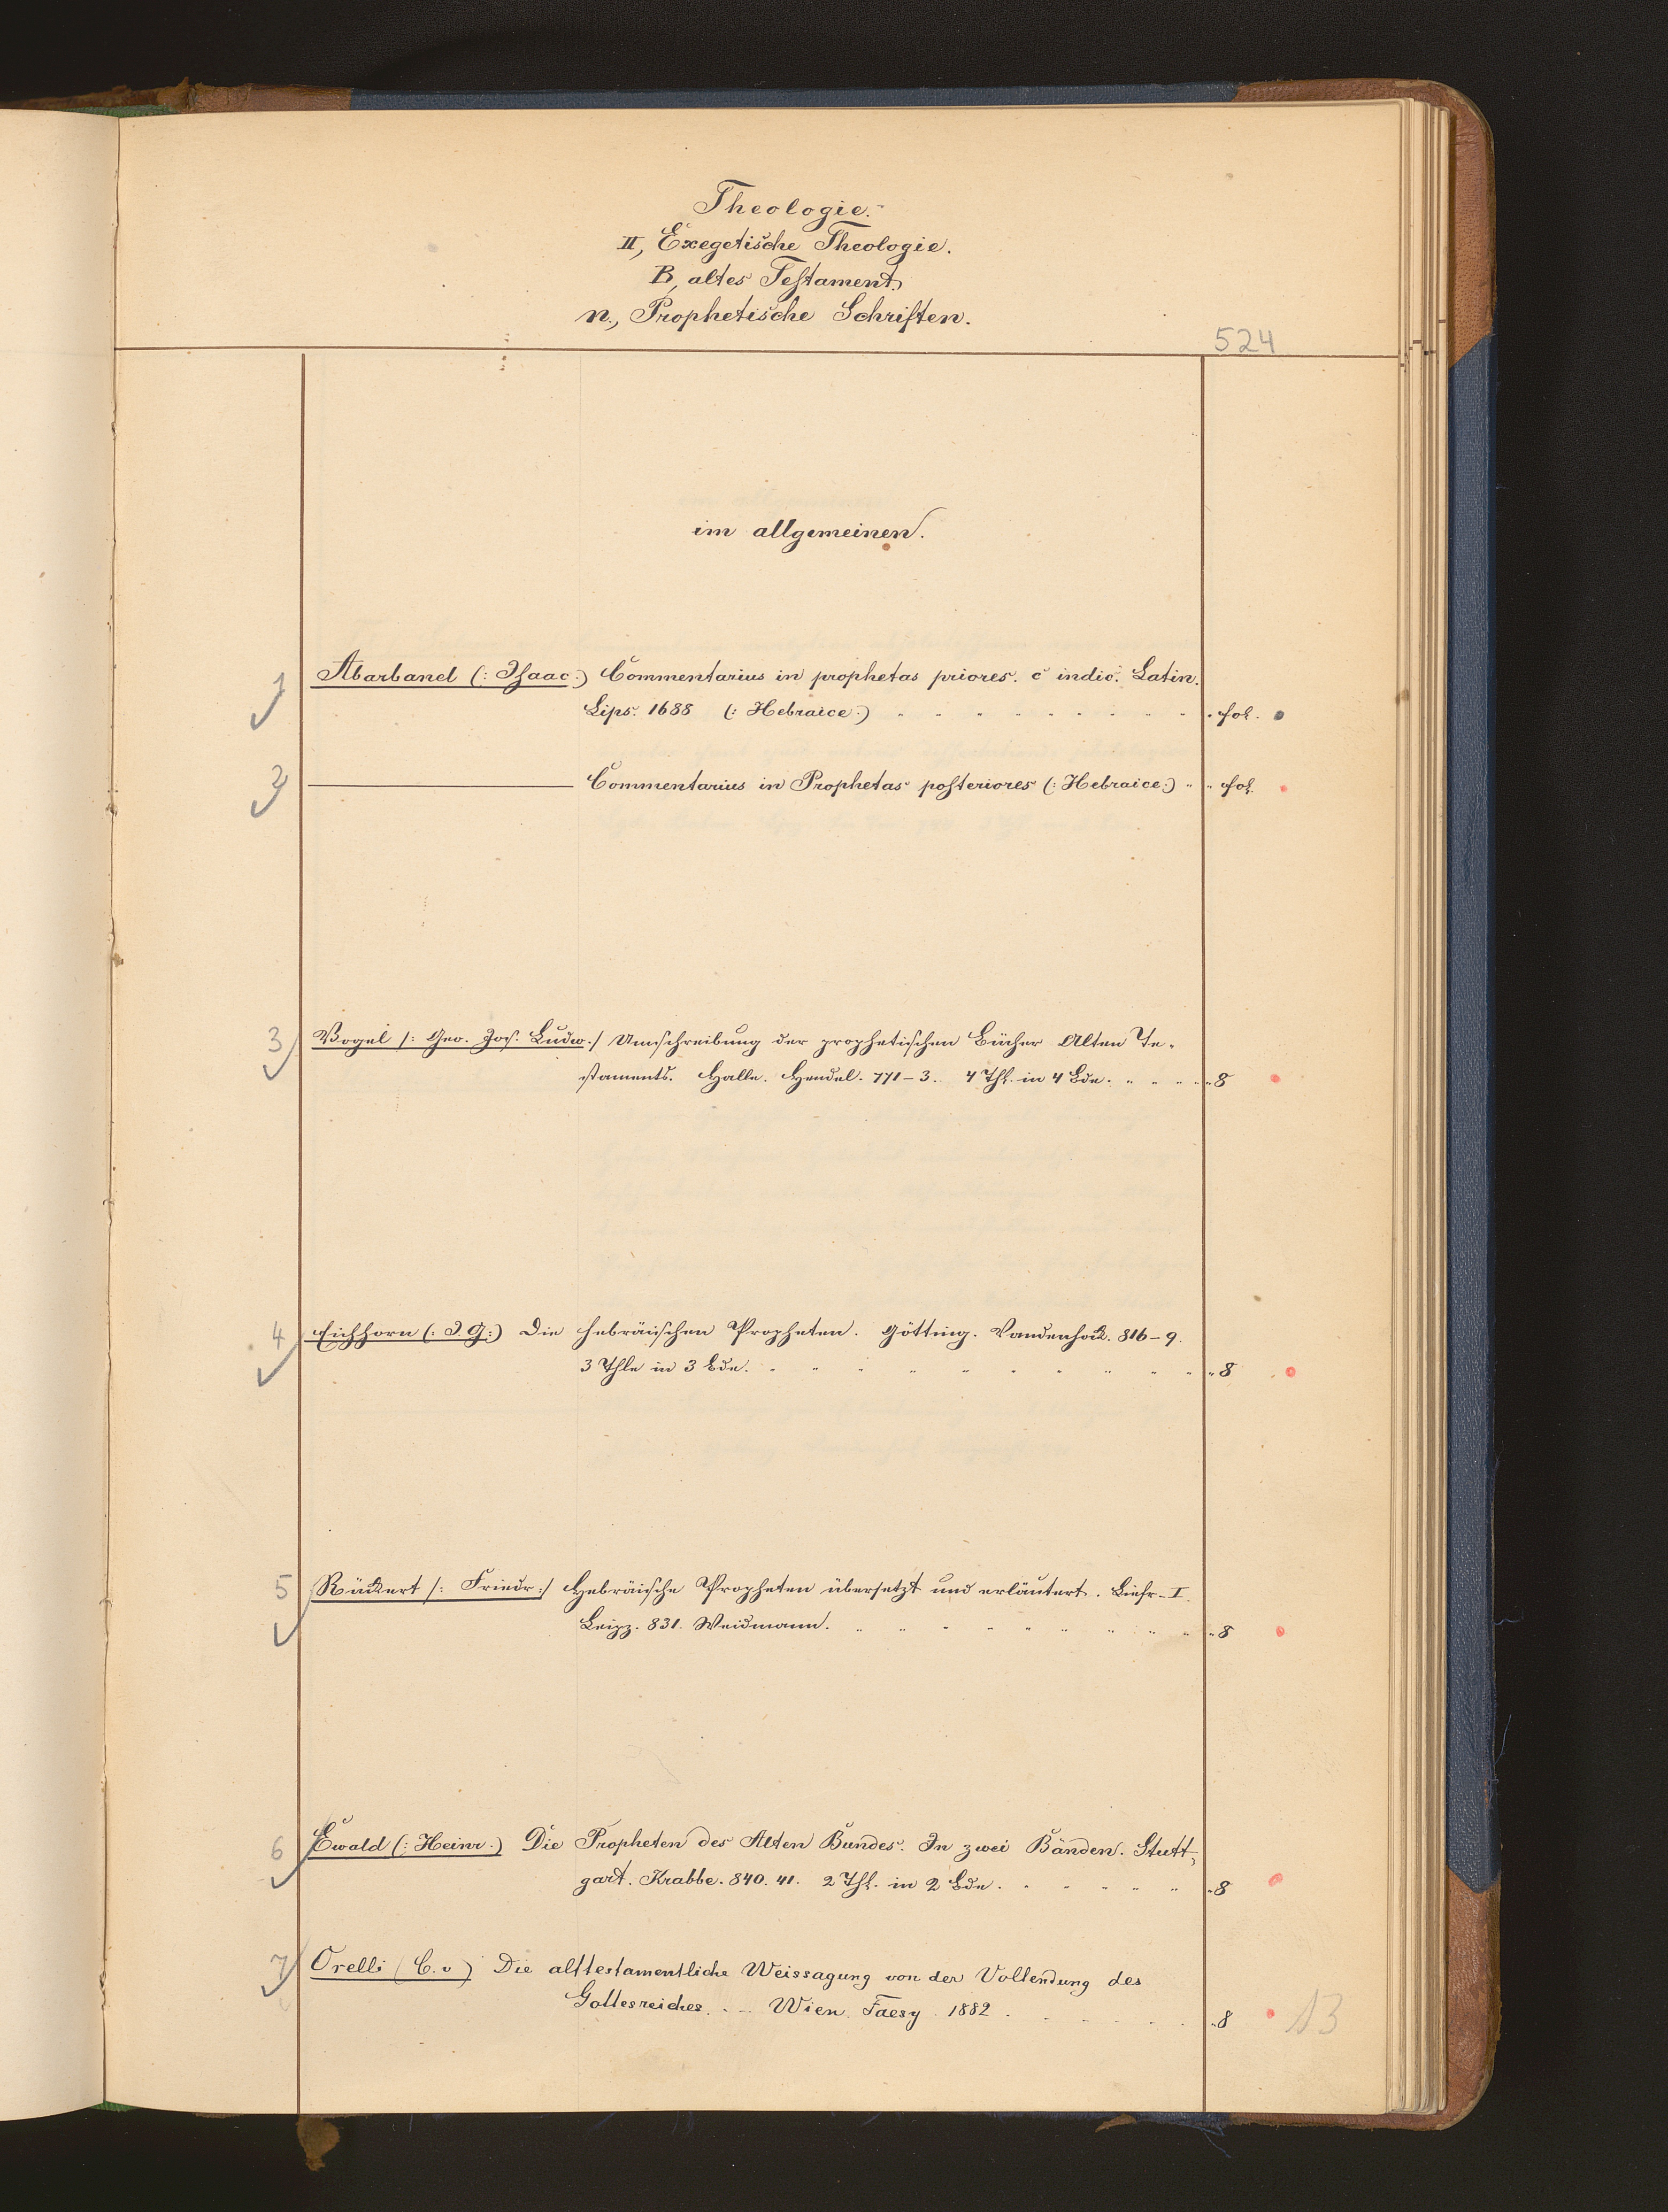 Theologie.
II, Exegetische Theologie.
B, altes Testament.
n., Prophetische Schriften.
524
im allgemeinen.
1 Abarbanel (: Isaac :) Commentarius in prophetas priores. c indic. Latin.
Lips. 1688 (: Hebraice :) fol.
2 ——— Commentarius in Prophetas posteriores (: Hebraice :) fol.
3 Vogel /: Geo. Joh. Ludw. :/ Umschreibung der prophetischen Bücher Alten Te-
staments. Halle. Hendel. 771-3. 4 Thl. in 4 Bde. 8
4 Eichhorn (: J. G :) Die hebräischen Propheten. Götting. Vandenhoek. 816-9.
3 Thle in 3 Bde. 8
5 Rückert /: Friedr :/ Hebräische Propheten übersetzt und erläutert. Liefr. I.
Leipz. 831. Weidmann. 8
6 Ewald (: Heinr. :) Die Propheten des Alten Bundes. In zwei Bänden. Stutt-
gart. Krabbe. 840. 41. 2 Thl. in 2 Bde. 8
7 Orelli (C. v) Die alttestamentliche Weissagung von der Vollendung des
Gottesreiches. .- Wien. Faesy. 1882. 8
13